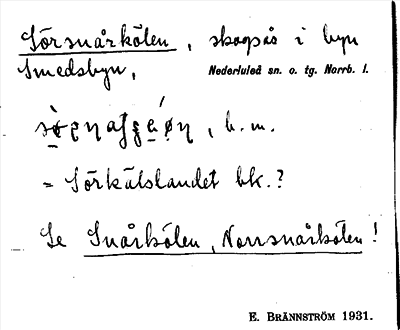 Sörsnårkölen, skogsås i byn
Smedsbyn, Nederluleå sn. o. tg. Norrb. l.
b. m.
= Sörkälslandet bk.?
Se Snårkölen, Norrsnårkölen!
E. BRÄNNSTRÖM 1931.